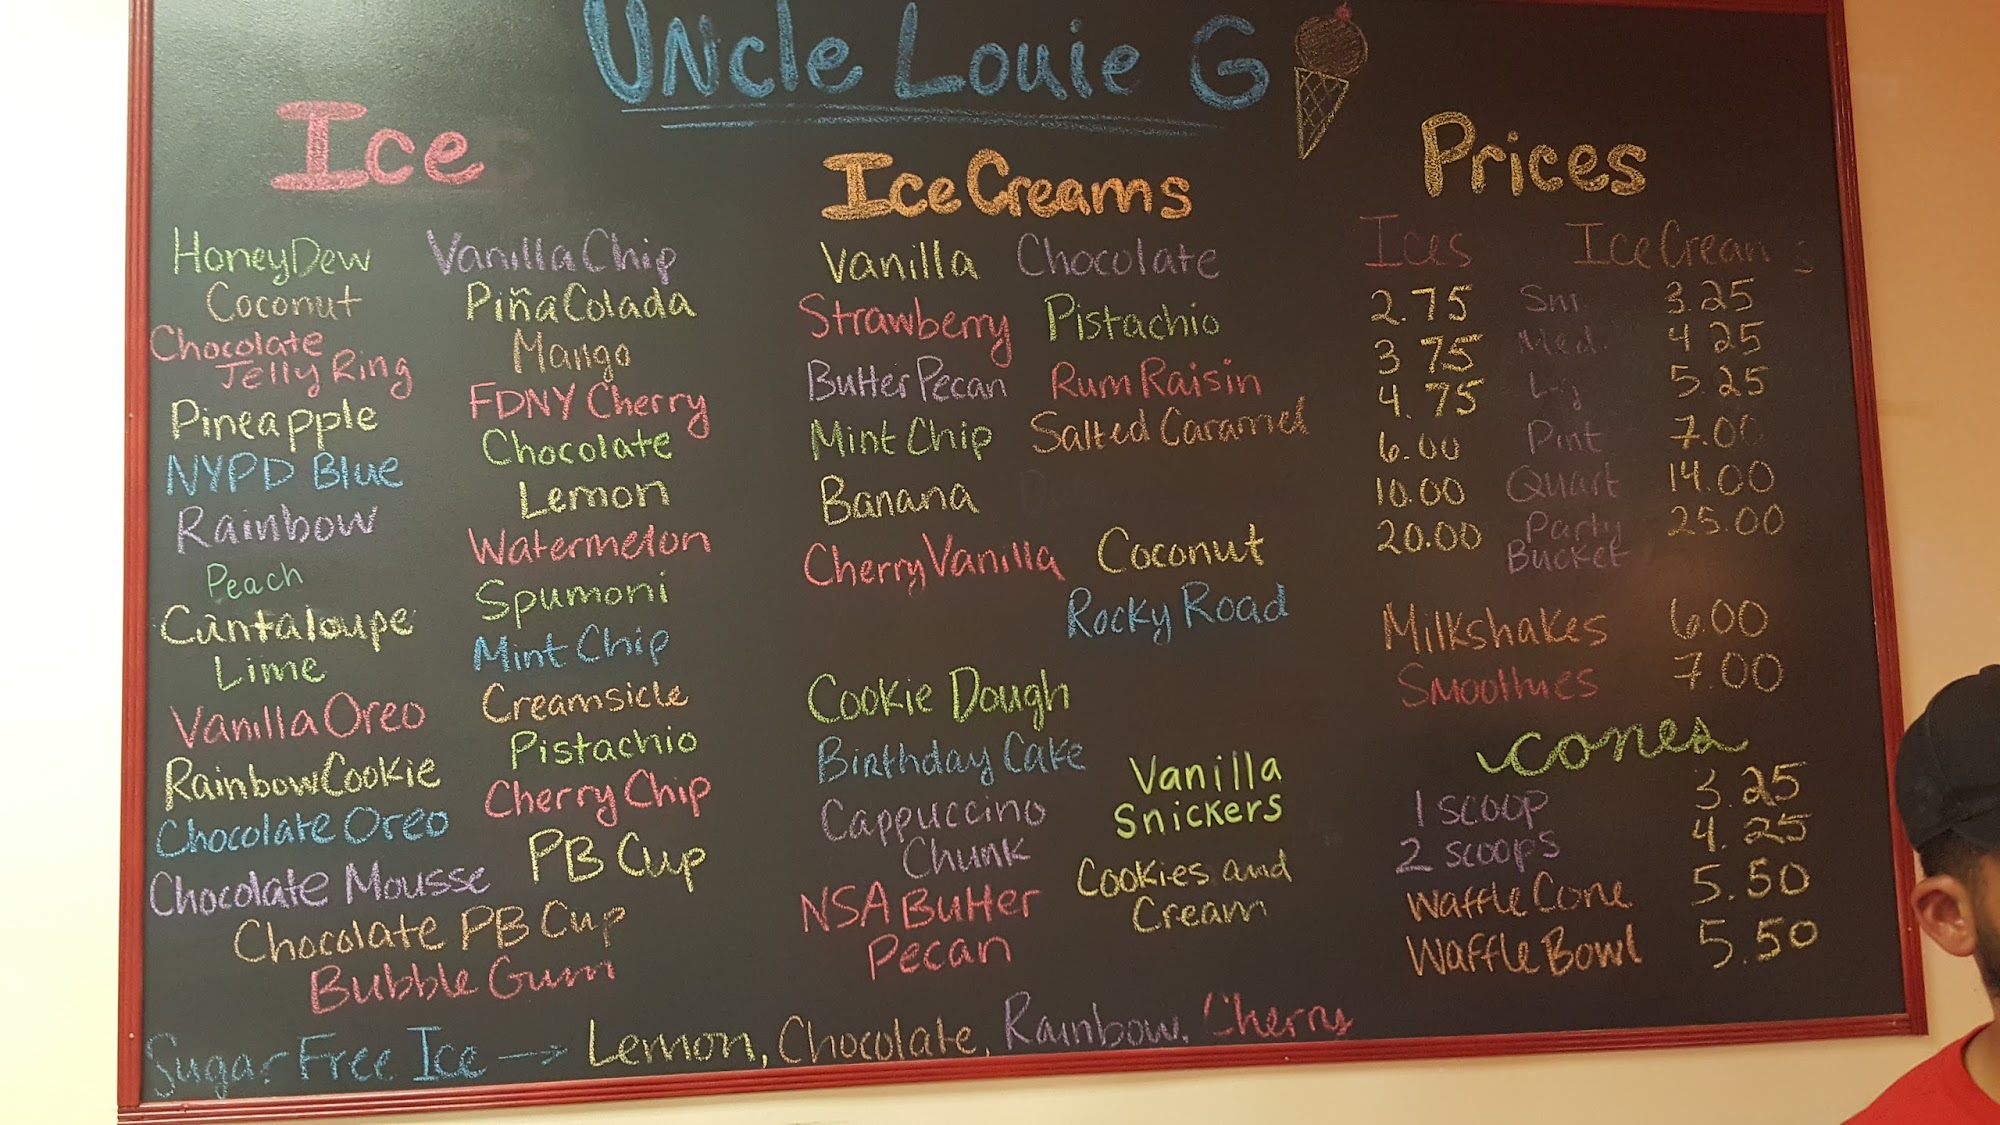 Uncle Louie G
Ice
HoneyDew
Coconut
Chocolate
Jelly Ring
Pineapple
NYPD Blue
Rainbow
Peach
Cantaloupe
Lime
Vanilla Oreo
Rainbow Cookie
Chocolate Oreo
Chocolate Mousse
Chocolate PB Cup
Bubble Gum
Vanilla Chip
Piña Colada
Mango
FDNY Cherry
Chocolate
Lemon
Watermelon
Spumoni
Mint Chip
Creamsicle
Pistachio
Cherry Chip
PB Cup
Ice Creams
Vanilla Chocolate
Strawberry Pistachio
Butter Pecan Rum Raisin
Mint Chip Salted Caramel
Banana
Cherry Vanilla Coconut
Rocky Road
Cookie Dough
Birthday Cake
Cappuccino
Chunk
NSA Butter
Pecan
Vanilla
Snickers
Cookies and
Cream
Sugar Free Ice → Lemon, Chocolate, Rainbow, Cherry
Prices
Ices Ice Creams
2.75 Sm. 3.25
3.75 Med. 4.25
4.75 Lg 5.25
6.00 Pint 7.00
10.00 Quart 14.00
20.00 Party 25.00
Bucket
Milkshakes 6.00
Smoothies 7.00
Cones
1 scoop 3.25
2 scoops 4.25
Waffle Cone 5.50
Waffle Bowl 5.50